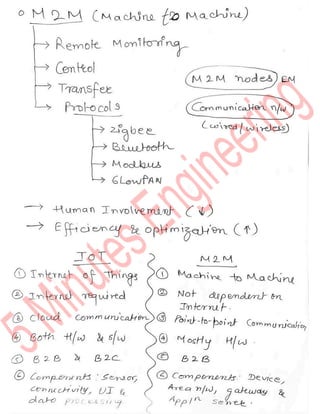 o M2M (Machine to Machine)
→ Remote Monitoring
→ Control
→ Transfer
→ Protocols
M2M nodes EM
Communication n/w
(wired/wireless)
→ Zigbee
→ Bluetooth
→ Modbus
→ 6LowPAN
→ Human Involvement (↓)
→ Efficiency & optimization (↑)
5 Minutes Engineering
IOT
① Internet of Things
② Internet required
③ Cloud communication
④ Both H/w & S/w
⑤ B2B & B2C
⑥ Components: Sensor,
connectivity, UI &
data processing
M2M
① Machine to Machine
② Not dependent on
Internet.
③ Point-to-point Communication
④ Mostly H/w.
⑤ B2B
⑥ Components: Device,
Area n/w, gateway &
Appln server.